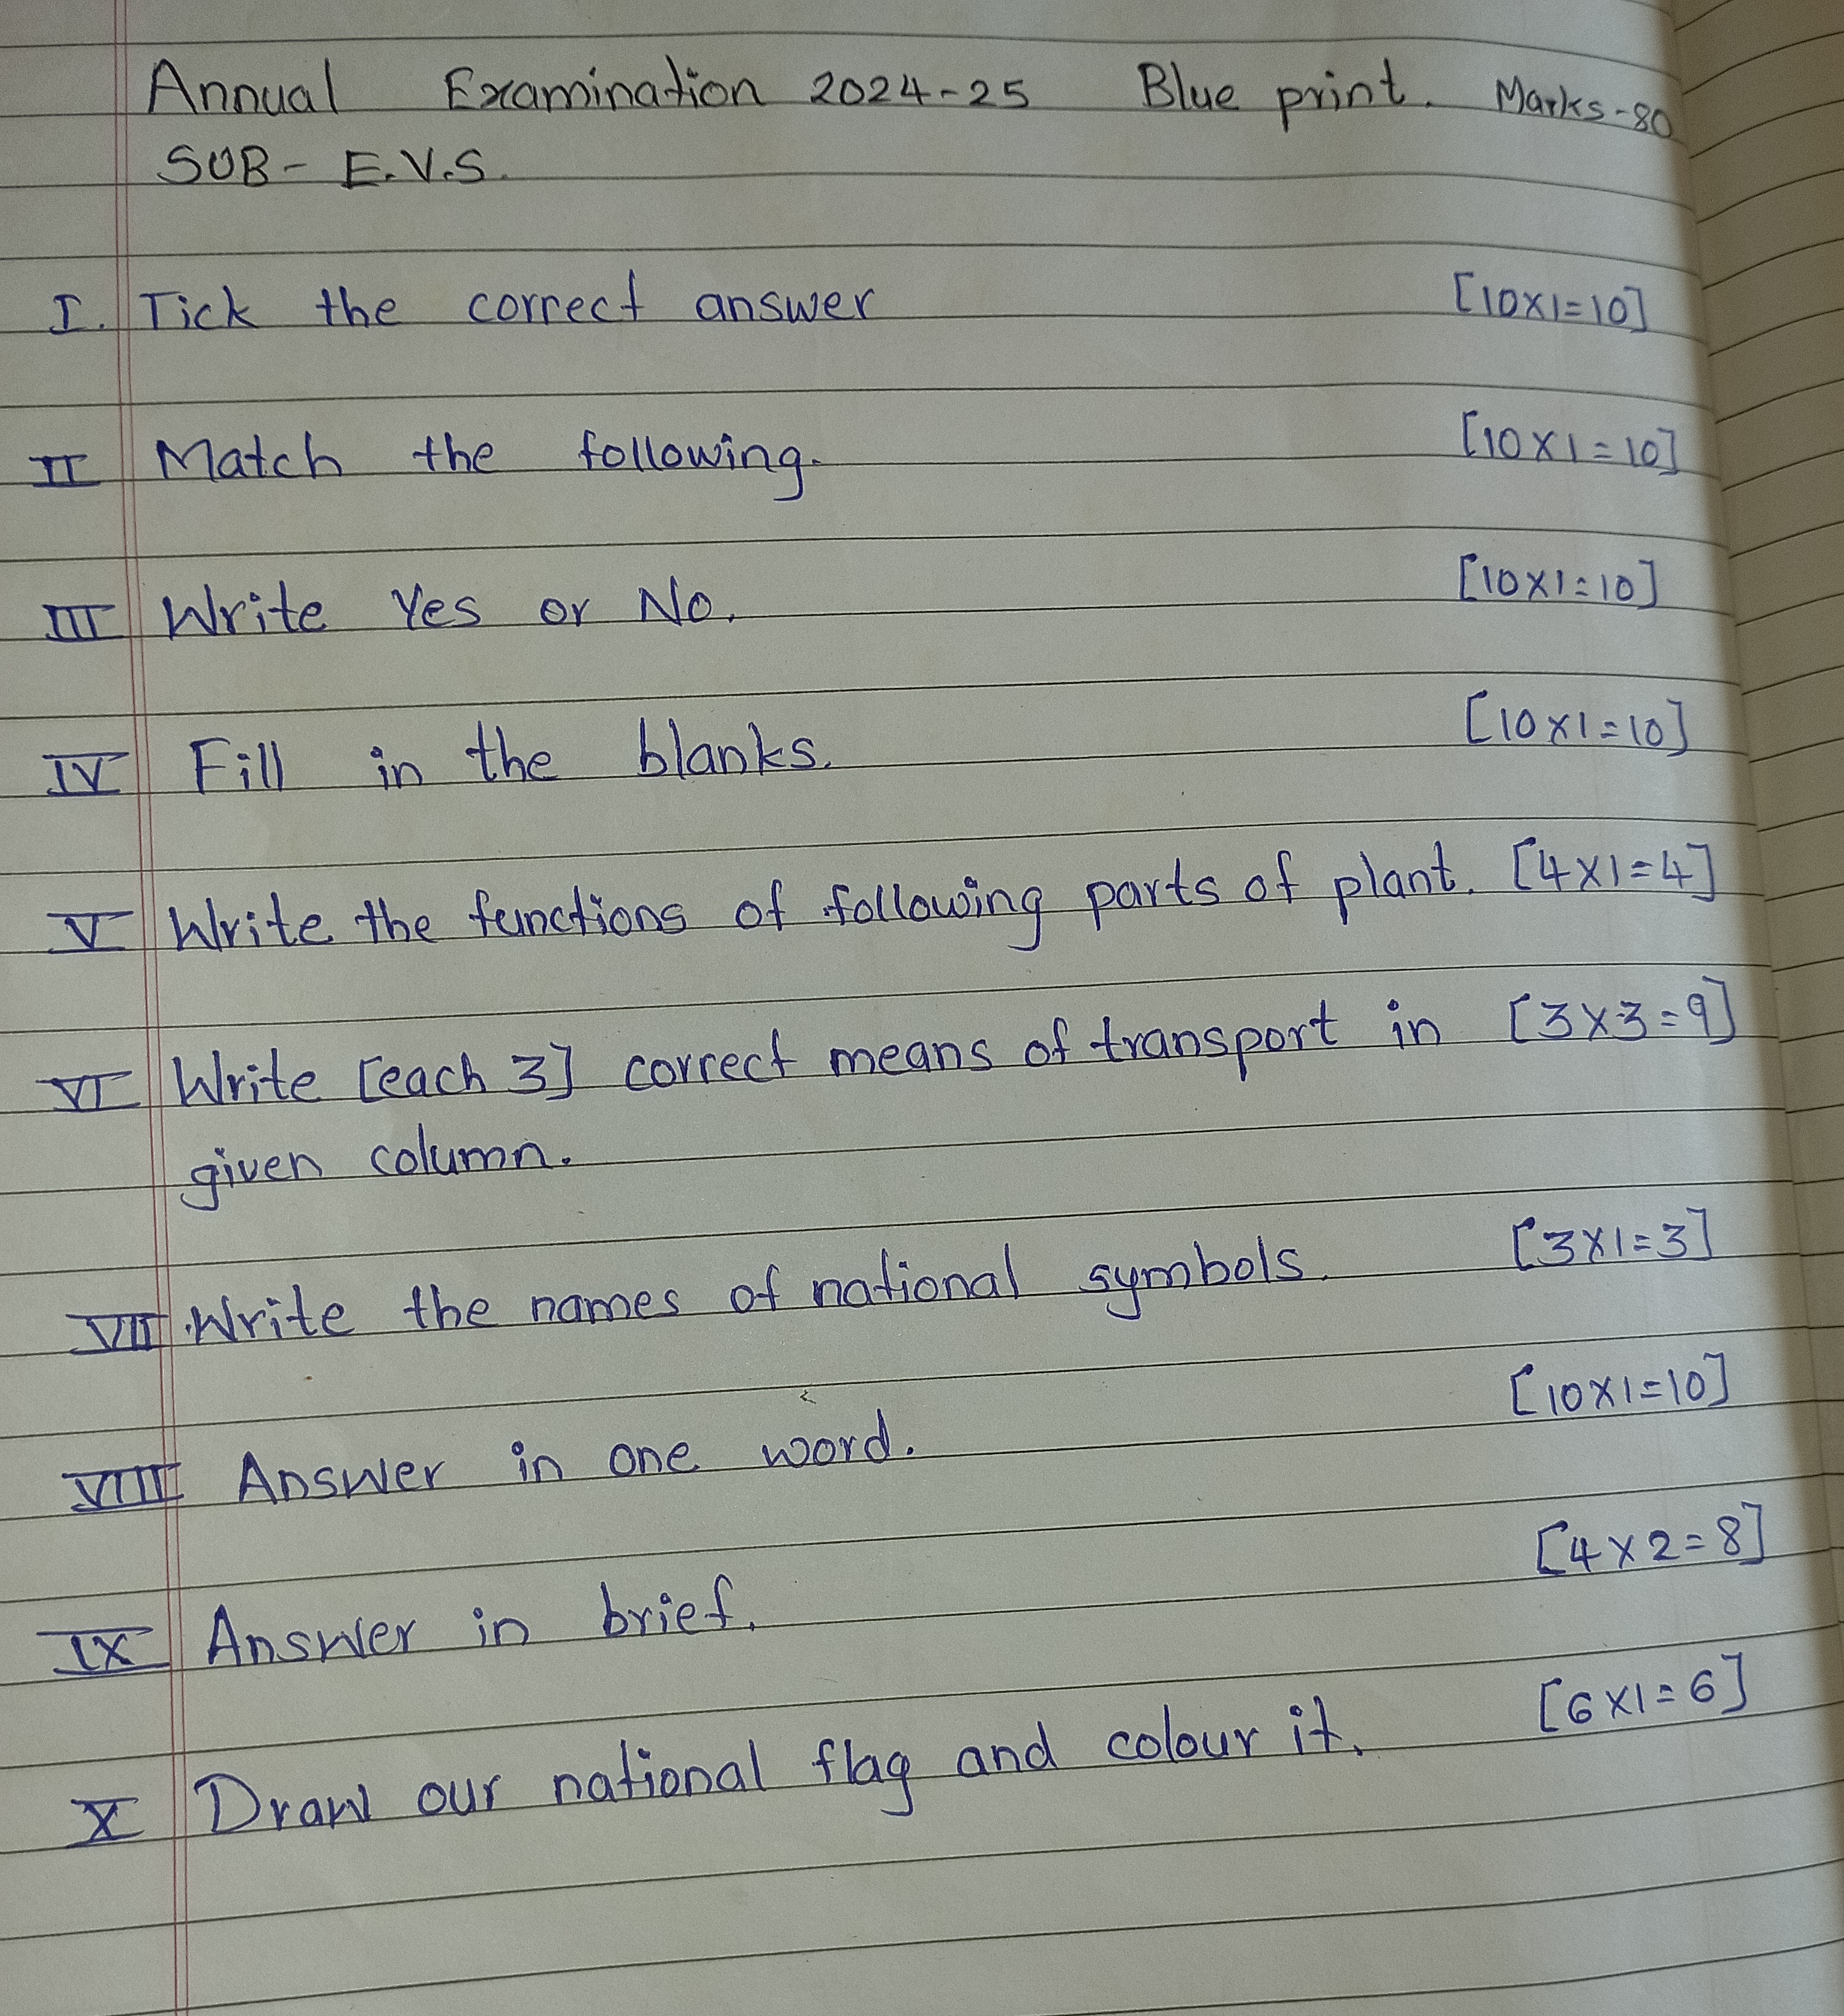 Annual Examination 2024-25 Blue print. Marks-80
SUB- E.V.S.
I. Tick the correct answer [10x1=10]
II Match the following. [10x1=10]
III Write Yes or No. [10x1=10]
IV Fill in the blanks. [10x1=10]
V Write the functions of following parts of plant. [4x1=4]
VI Write [each 3] correct means of transport in [3x3=9]
given column.
VII Write the names of national symbols. [3x1=3]
VIII Answer in one word. [10x1=10]
IX Answer in brief. [4x2=8]
X Draw our national flag and colour it. [6x1=6]